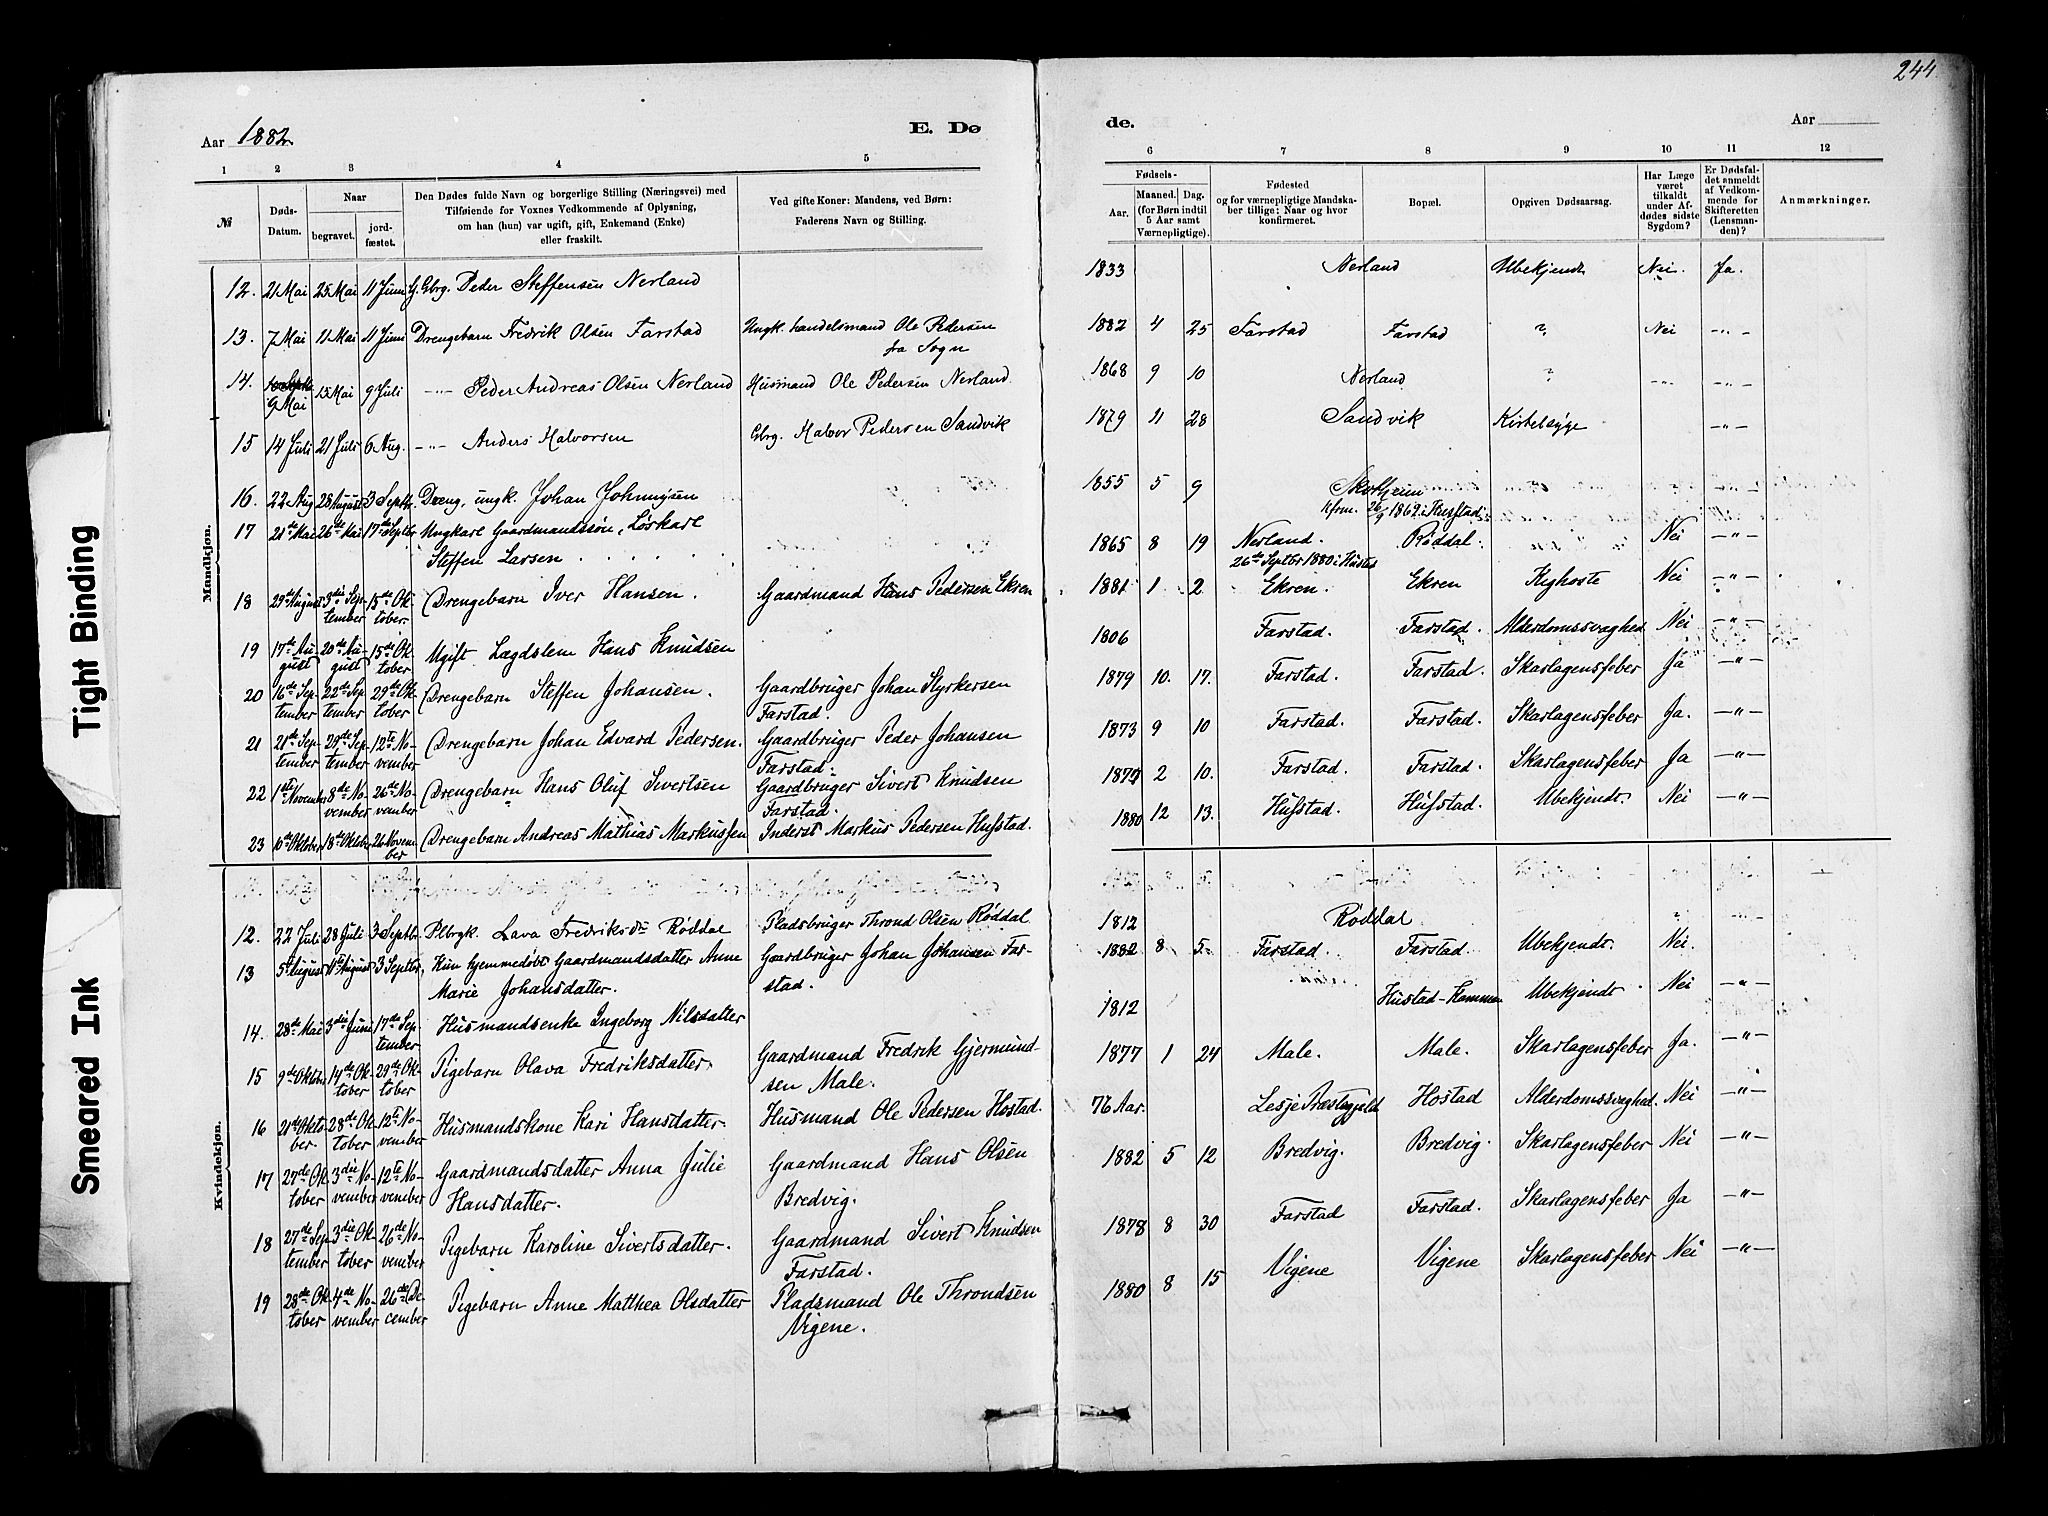 244
Aar 1882
E. Dø
de.
Aar
1 2 3 4 5 6 7 8 9 10 11 12
№
Døds-
Datum.
Naar
begravet.
jord-
fæstet.
Den Dødes fulde Navn og borgerlige Stilling (Næringsvei) med
Tilføiende for Voxnes Vedkommende af Oplysning,
om han (hun) var ugift, gift, Enkemand (Enke)
eller fraskilt.
Ved gifte Koner: Mandens, ved Børn:
Faderens Navn og Stilling.
Fødsels-
Aar.
Maaned. Dag.
(for Børn indtil
5 Aar samt
Værnepligtige).
Fødested
og for værnepligtige Mandska-
ber tillige: Naar og hvor
konfirmeret.
Bopæl.
Opgiven Dødsaarsag.
Har Læge
været
tilkaldt
under Af-
dødes sidste
Sygdom?
Er Dødsfal-
det anmeldt
af Vedkom-
mende for
Skifteretten
(Lensman-
den)?
Anmærkninger.
Mandkjøn.
12. 21 Mai 25 Mai 11 Juni G. Gbrg. Peder Steffensen Nerland 1833 Nerland Ubekjendt Nei. Ja.
13. 7 Mai 11 Mai 11 Juni Drengebarn Fredrik Olsen Farstad Ungk. handelsmand Ole Pedersen 1882 4 25 Farstad Farstad ? Nei -"-
fra Sogn
14. 9 Mai 15 Mai 9 Juli -"- Peder Andreas Olsen Nerland Husmand Ole Pedersen Nerland 1868 9 10 Nerland ? -"- -"-
15 14 Juli 21 Juli 6 Aug. -"- Anders Halvorsen Gbrg. Halvor Pedersen Sandvik 1879 11 28 Sandvik Kirtelsyge -"-
16. 22 Aug 28 August 3 Septbr. Dreng, ungk. Johan Johnnysen 1855 5 9 Skotheim
17 21de Mai 26de Mai 17de Septbr Ungkarl Gaardmandssøn, Løskarl
Steffen Larsen 1865 8 19 Nerland. Røddal. Nei -"-
26de Septbr 1880 i Hustad
18 29de August 3die Sep-
tember 15de Ok-
tober. Drengebarn Iver Hansen. Gaardmand Hans Pedersen Ekren 1881 1 2 Ekren. Ekren Kighoste Nei -"-
19 17de Au-
gust 20de Au-
gust 15de Ok-
tober Ugift Lægdslem Hans Knudsen 1806 Farstad. Farstad. Alderdomssvaghed Nei -"-
20 16de Sep-
tember 22de Sep-
tember 29de Ok-
tober Drengebarn Steffen Johansen. Gaardbruger Johan Styrkersen
Farstad. 1879 10. 17. Farstad. Farstad. Skarlagensfeber Ja -"-
21 21de Sep-
tember 29de Sep-
tember 12te No-
vember Drengebarn Johan Edvard Pedersen. Gaardbruger Peder Johansen
Farstad. 1873 9 10 Farstad. Farstad. Skarlagensfeber Ja. -"-
22 1ste November 8de No-
vember 26de No-
vember Drengebarn Hans Oluf Sivertsen Gaardbruger Sivert Knudsen
Farstad. 2 10. Farstad. Farstad. Skarlagensfeber Ja -"-
23 10de Oktober 18de Oktober 26 Novem-
ber Drengebarn Andreas Mathias Markussen Inderst Markus Pedersen Hustad. 1880 12 13. Hustad. Hustad. Ubekjendt. Nei -"-
Kvindekjøn.
12. 22 Juli 28 Juli 3 Septbr. Plbrgk. Lava Fredriksdtr Røddal Pladsbruger Thrond Olsen Røddal 1812 Røddal " -"-
13 5 August 11te August 3 Septbr. Kun hjemmedøbt Gaardmandsdatter Anne
Marie Johansdatter. Gaardbruger Johan Johansen Far-
stad. 1882 8 5. Farstad. Farstad. Ubekjendt. Nei. -"-
14. 28de Mai 3die Juni 17de Sep-
tember Husmandsenke Ingeborg Nilsdatter 1812 Hustad- Ubekjendt Nei -"-
15 9de Oktober 14de Ok-
tober 29de Ok-
tober Pigebarn Olava Fredriksdatter. Gaardmand Fredrik Gjermund-
sen Male. 1877 1 24 Male. Male. Skarlagensfeber Ja. -"-
16 21de Okto-
ber. 28de Ok-
tober 12te No-
vember Husmandskone Kari Hansdatter. Husmand Ole Pedersen Hostad. 76 Aar. Lesje Præstegjeld Hostad Alderdomssvaghed. Nei -"-
17 27de Ok-
tober 3die No-
vember 12te No-
vember Gaardmandsdatter Anna Julie
Hansdatter. Gaardmand Hans Olsen
Bredvig. 1882 5 12 Bredvig. Bredvig. Skarlagensfeber Nei -"-
18 27de Sep-
tember 3die Ok-
tober 26de No-
vember Pigebarn Karoline Sivertsdatter. Gaardmand Sivert Knudsen
Farstad. 1878 8 30 Farstad Farstad. Skarlagensfeber Ja -"-
19 28de Ok-
tober 4de No-
vember 26de De-
cember Pigebarn Anne Matthea Olsdatter Pladsmand Ole Throndsen
Vigene. 1880 8 15 Vigene Vigene Skarlagensfeber Nei -"-
Tight Binding
Smeared Ink